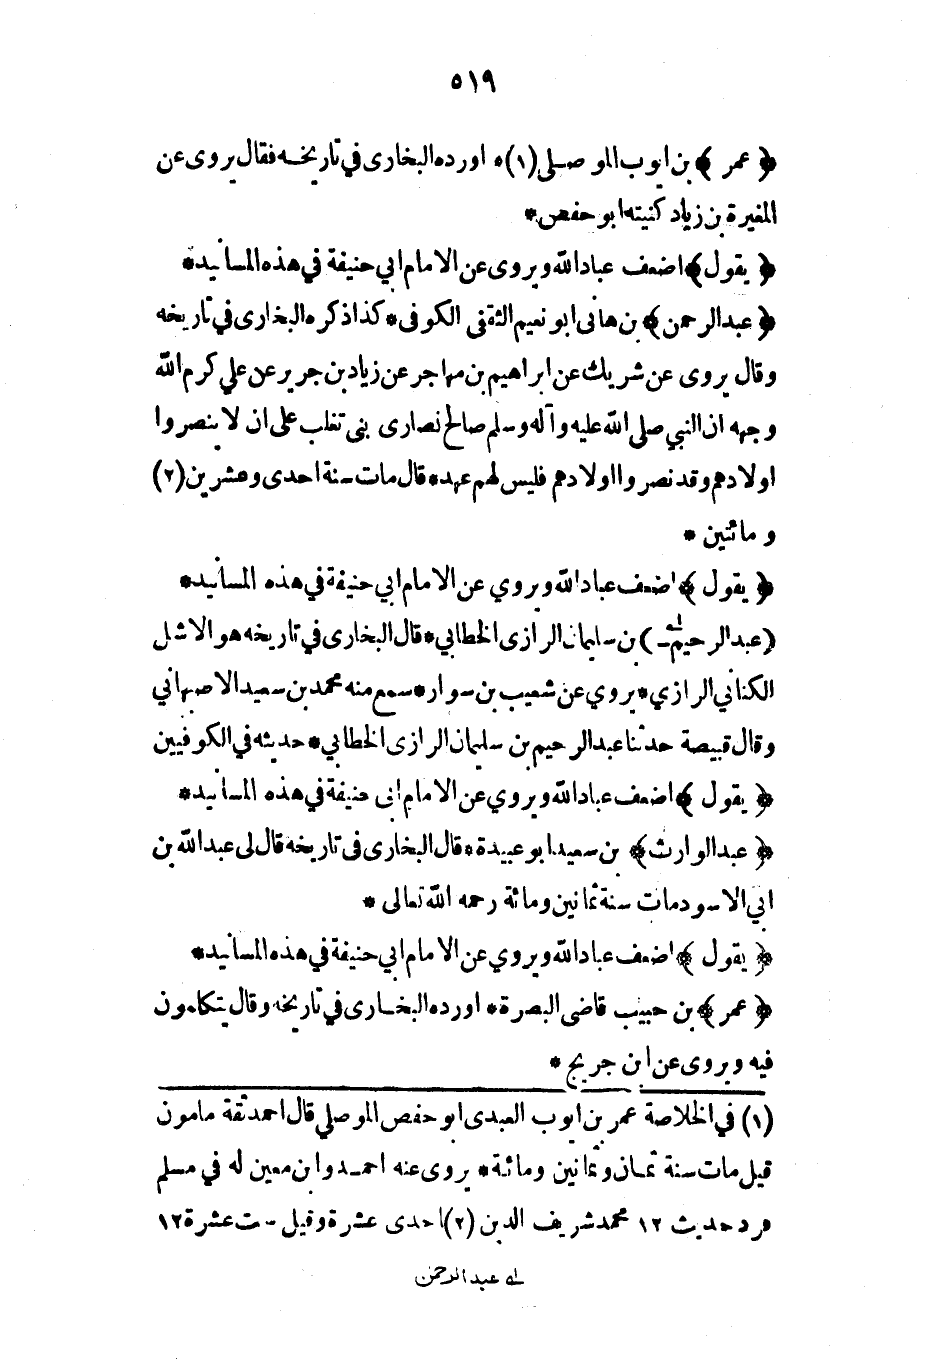 ٥١٩
﴿ عمر ﴾ بن ايوب الموصلى (١)* اورده البخارى في تاريخه فقال يروى عن
المغيرة بن زياد كنيته ابو حفص *
﴿ يقول ﴾ اضعف عباد الله ويروى عن الامام ابي حنيفة في هذه المسانيد *
﴿ عبد الرحمن ﴾ بن هانى ابو نعيم الثقفى الكوفى * كذا ذكره البخارى في تاريخه
وقال يروى عن شريك عن ابراهيم بن مهاجر عن زياد بن جرير عن علي كرم الله
وجهه ان النبي صلى الله عليه وآله وسلم صالح نصارى بنى تغلب على ان لا ينصروا
اولادهم وقد نصروا اولادهم فليس لهم عهد * قال مات سنة احدى وعشرين (٢)
و مائتين *
﴿ يقول ﴾ اضعف عباد الله ويروي عن الامام ابي حنيفة في هذه المسانيد *
(عبد الرحيم له) بن سليمان الرازى الخطابي * قال البخارى في تاريخه هو الاشل
الكناني الرازي * يروي عن شعيب بن سوار * سمع منه محمد بن سعيد الاصبهاني
وقال قبيصة حدثنا عبد الرحيم بن سليمان الرازى الخطابي * حديثه في الكوفيين
﴿ يقول ﴾ اضعف عباد الله ويروي عن الامام ابى حنيفة في هذه المسانيد *
﴿ عبد الوارث ﴾ بن سعيد ابو عبيدة * قال البخارى فى تاريخه قال لى عبد الله بن
ابي الاسود مات سنة ثمانين ومائة رحمه الله تعالى *
﴿ يقول ﴾ اضعف عباد الله ويروي عن الامام ابي حنيفة في هذه المسانيد *
﴿ عمر ﴾ بن حبيب قاضى البصرة * اورده البخارى في تاريخه وقال يتكلمون
فيه ويروى عن ابن جريج *
(١) في الخلاصة عمر بن ايوب العبدى ابو حفص الموصلي قال احمد ثقة مامون
قيل مات سنة ثمان وثمانين ومائة * يروى عنه احمد وابن معين له في مسلم
فرد حديث ١٢ محمد شريف الدين (٢) احدى عشرة وقيل ست عشرة ١٢
له عبد الرحمن